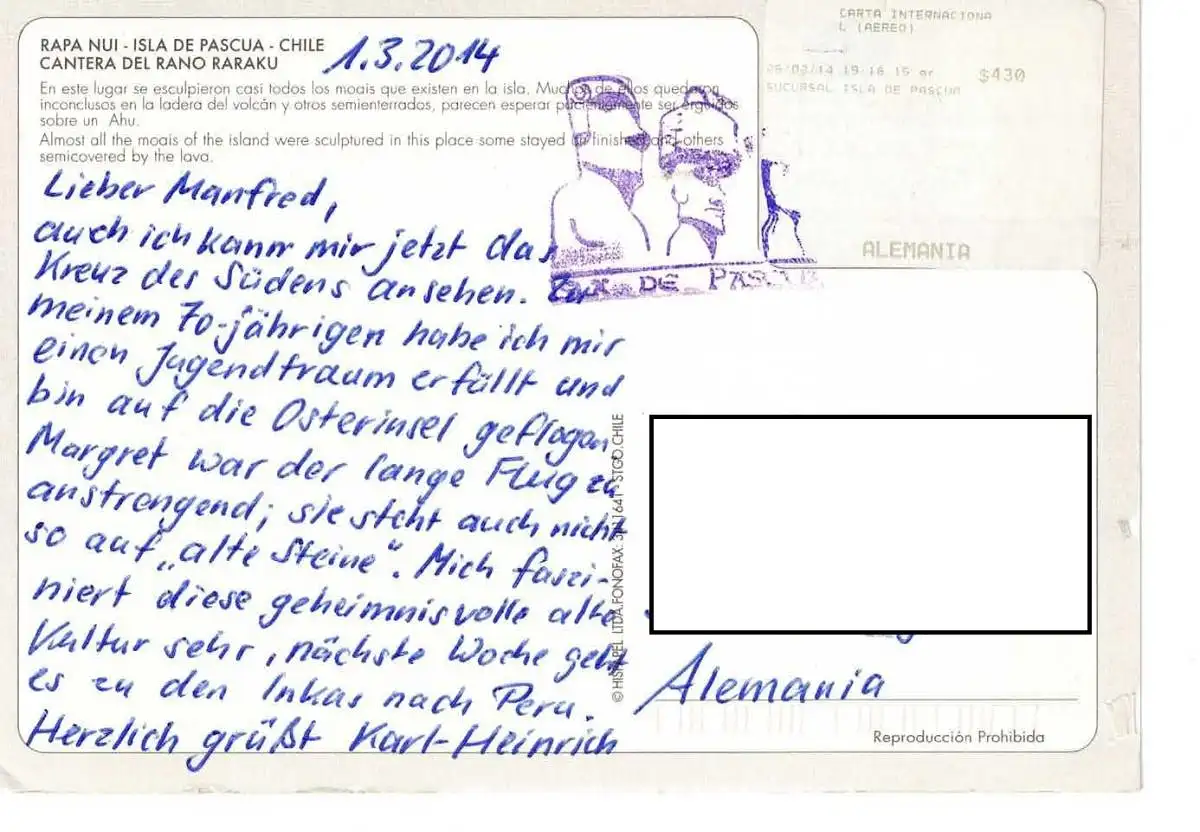 RAPA NUI - ISLA DE PASCUA - CHILE
CANTERA DEL RANO RARAKU
1.3.2014
En este lugar se esculpieron casi todos los moais que existen en la isla. Muchos de ellos quedaron
inconclusos en la ladera del volcán y otros semienterrados, parecen esperar pacientemente ser erguidos
sobre un Ahu.
Almost all the moais of the island were sculptured in this place some stayed un finished and others
semicovered by the lava.
Lieber Manfred,
auch ich kann mir jetzt das
Kreuz des Südens ansehen. Zu
meinem 70-jährigen habe ich mir
einen Jugendtraum erfüllt und
bin auf die Osterinsel geflogen.
Margret war der lange Flug zu
anstrengend; sie steht auch nicht
so auf „alte Steine". Mich faszi-
niert diese geheimnisvolle alte
Kultur sehr, nächste Woche geht
es zu den Inkas nach Peru.
Herzlich grüßt Karl-Heinrich
CARTA INTERNACIONA
L (AEREO)
19 16 15 $430
SUCURSAL ISLA DE PASCUA
ALEMANIA
DE PASCUA
LTDA. FONOFAX: STGO. CHILE
Alemania
Reproducción Prohibida